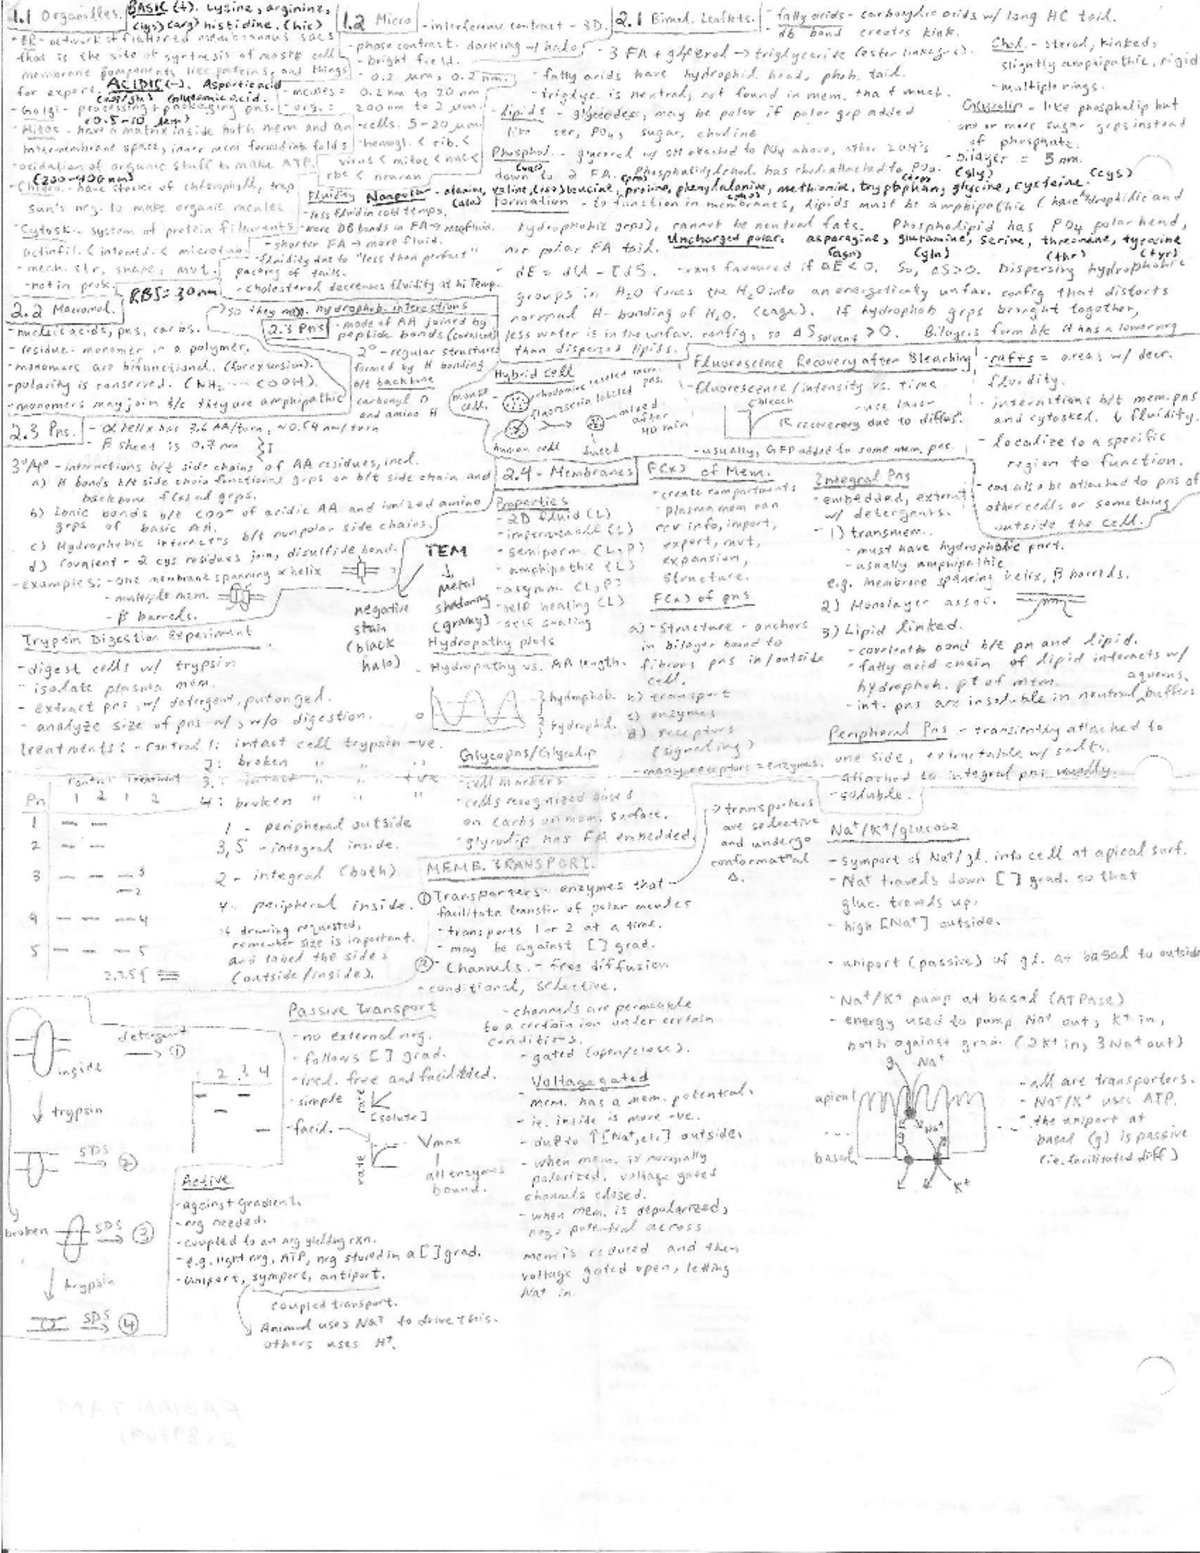 1.1 Organelles.
BASIC (+). Lysine, arginine,
(lys) (arg) histidine. (his)
- ER - network of flattened membranous sacs
that is the site of synthesis of most cell
membrane components like proteins, and things
for export.
ACIDIC (-). Aspartic acid
Glutamic acid.
- Golgi - processing + packaging pns.
(0.5-10 µm)
- Mitos - have a matrix inside both mem and an
intermembrane space, inner mem formed into folds
- oxidation of organic stuff to make ATP.
- Chloro. - have stacks of chlorophyll, trap
sun's nrg. to make organic mcules
- Cytosk. - system of protein filaments
actin fil. < intermed. < microtub
- mech. str, shape, mvt.
- not in prok.
RBS = 30 nm
1.2 Micro
- interference contrast - 3D.
- phase contrast. dark ring w/ halo
- bright field.
- 0.2 µm, 0.2 nm.
- mcules = 0.2 nm to 20 nm
- org.: 200 nm to 2 µm.
- cells. 5-20 µm
- hemogl. < rib. <
virus < mitoc < nuc <
rbc < neuron
Fluidity
- less fluid in cold temps.
- more DB bonds in FA → more fluid.
- shorter FA → more fluid.
- fluidity due to "less than perfect"
packing of tails.
- cholesterol decreases fluidity at hi Temp.
2.1 Bimol. Leaflets.
- fatty acids - carboxylic acids w/ long HC tail.
- db bond creates kink.
- 3 FA + glycerol → triglyceride (ester linkages).
- fatty acids have hydrophil head, phob. tail.
- triglyc. is neutral, not found in mem. that much.
- lipids - glycerides, may be polar if polar grp added
like ser, PO4, sugar, choline
Phosphol. - glycerol w/ OH attached to PO4 above, other 2 OH's
down to 2 FA. Phosphatidylchol. has chol. attached to PO4.
Chol. - steroid, kinked,
slightly amphipathic, rigid
- multiple rings.
Glycolip - like phospholip but
one or more sugar grps instead
of phosphate.
- bilayer = 5 nm.
Nonpolar - alanine, valine, (iso)leucine, proline, phenylalanine, methionine, tryptophan, glycine, cysteine.
(ala) (gly) (cys)
Formation - to function in membranes, lipids must be amphipathic (have hydrophilic and
hydrophobic grps), cannot be neutral fats. Phospholipid has PO4 polar head,
non polar FA tail. Uncharged polar: asparagine, glutamine, serine, threonine, tyrosine
(asn) (gln) (thr) (tyr)
- dE = dU - TdS. - rxns favoured if ΔE<0. So, ΔS>0. Dispersing hydrophobic
groups in H2O forces the H2O into an energetically unfav. config that distorts
normal H-bonding of H2O. (cage). If hydrophob grps brought together,
less water is in the unfav. config, so ΔS solvent > 0. Bilayers form b/c it has a lower nrg
than dispersed lipids.
2.2 Macromol.
- nucleic acids, pns, carbs.
- residue - monomer in a polymer.
- monomers are bifunctional. (for extension).
- polarity is conserved. (NH2 ... COOH).
- monomers may join b/c they are amphipathic
so they max. hydrophob. interactions
2.3 Pns
- made of AA joined by
peptide bonds (covalent)
2° - regular structures
formed by H bonding
b/t backbone
carbonyl O
and amino H
2.3 Pns.
- α helix has 3.6 AA/turn, ≈0.54 nm/turn
- β sheet is 0.7 nm
3°/4° - interactions b/t side chains of AA residues, incl.
a) H bonds b/t side chain functional grps or b/t side chain and
backbone f(x)al grps.
b) Ionic bonds b/t COO- of acidic AA and ionized amino
grps of basic AA.
c) Hydrophobic interact'ns b/t nonpolar side chains.
d) Covalent - 2 cys residues join, disulfide bond.
- examples: - one membrane spanning α helix
- multiple mem.
- β barrels.
Hybrid Cell
mouse cell,
rhodamine labeled mem. pns.
fluorescein labeled
mixed after 40 min
human cell
fused
Fluorescence Recovery after Bleaching
- fluorescence / intensity vs. time
bleach
- use laser
recovering due to diffus'.
- usually, GFP added to some mem. pns.
- rafts = areas w/ decr.
fluidity.
- interactions b/t mem. pns
and cytosked. ↓ fluidity.
- localize to a specific
region to function.
- can also be attached to pns of
other cells or something
outside the cell.
TEM
negative
stain
(black
halo)
metal
shadowing
(grainy)
2.4 - Membranes
Properties
- 2D fluid (L)
- impermeable (L)
- semiperm. (L,P)
- amphipathic (L)
- asymm. (L,P)
- self healing (L)
- self sealing
F(x) of Mem.
- create compartments
- plasma mem can
rcv info, import,
export, mvt,
expansion,
structure.
F(x) of pns
a) - Structure - anchors
in bilayer bound to
fibrous pns in/outside
cell.
b) transport
c) enzymes
d) receptors
(signaling)
- many receptors = enzymes.
Integral Pns
- embedded, extract
w/ detergents.
- 1) transmem.
- must have hydrophobic part.
- usually amphipathic
e.g. membrane spanning helix, β barrels.
2) Monolayer assoc.
3) Lipid linked.
- covalent bond b/t pn and lipid.
- fatty acid chain of lipid interacts w/
hydrophob. pt of mem.
- int. pns are insoluble in neutral, aqueous buffers
Peripheral Pns - transiently attached to
one side, extractable w/ salts.
- attached to integral pns usually.
- soluble.
Trypsin Digestion Experiment
- digest cells w/ trypsin
- isolate plasma mem.
- extract pns, w/ detergent, put on gel.
- analyze size of pns w/, w/o digestion.
treatments: - control 1: intact cell trypsin -ve.
2: broken " " "
3: intact " " +ve
4: broken " " "
control treatment
Pn 1 2 1 2
1
2
3
4
5
1 - peripheral outside
3, 5 - integral inside.
2 - integral (both)
4 - peripheral inside.
if drawing requested,
remember size is important.
and label the sides
(outside/inside).
Hydropathy plots
- Hydropathy vs. AA length.
0
} hydrophob.
} hydrophil.
Glycopns/Glycolip
- cell markers
- cells recognized based
on carbs on mem. surface.
- glycolip has FA embedded.
MEMB. TRANSPORT.
① Transporters - enzymes that
facilitate transfer of polar mcules
- transports 1 or 2 at a time.
- may be against [ ] grad.
→ transporters
are selective
and undergo
conformat'al
Δ.
② - Channels. - free diffusion
- conditional, selective.
- channels are permeable
to a certain ion under certain
conditions.
- gated (open/close).
Voltage gated
- mem. has a mem. potential.
- ie. inside is more -ve.
- due to ↑[Na+, etc] outside.
- when mem. is normally
polarized, voltage gated
channels closed.
- when mem. is depolarized,
nego potential across
mem is reduced and then
voltage gated open, letting
Na+ in.
Na+/K+/glucose
- symport of Na+/gl. into cell at apical surf.
- Na+ travels down [ ] grad. so that
gluc. travels up.
- high [Na+] outside.
- uniport (passive) of gl. at basal to outside
- Na+/K+ pump at basal (ATPase)
- energy used to pump Na+ out, K+ in,
both against grad. (2K+ in, 3Na+ out)
g Na+
apical
basal
K+
- all are transporters.
- Na+/K+ uses ATP.
- the uniport at
basal (g) is passive
(i.e. facilitated diff)
Passive Transport
- no external nrg.
- follows [ ] grad.
- incl. free and facilitated.
- simple
rate
[solute]
- facil.
rate
Vmax
all enzymes
bound.
detergent
①
inside
trypsin
SDS ②
broken
SDS ③
trypsin
SDS ④
2 3 4
Active
- against gradient.
- nrg needed.
- coupled to an nrg yielding rxn.
- e.g. light nrg, ATP, nrg stored in a [ ] grad.
- uniport, symport, antiport.
coupled transport.
Animal uses Na+ to drive this.
others uses H+.